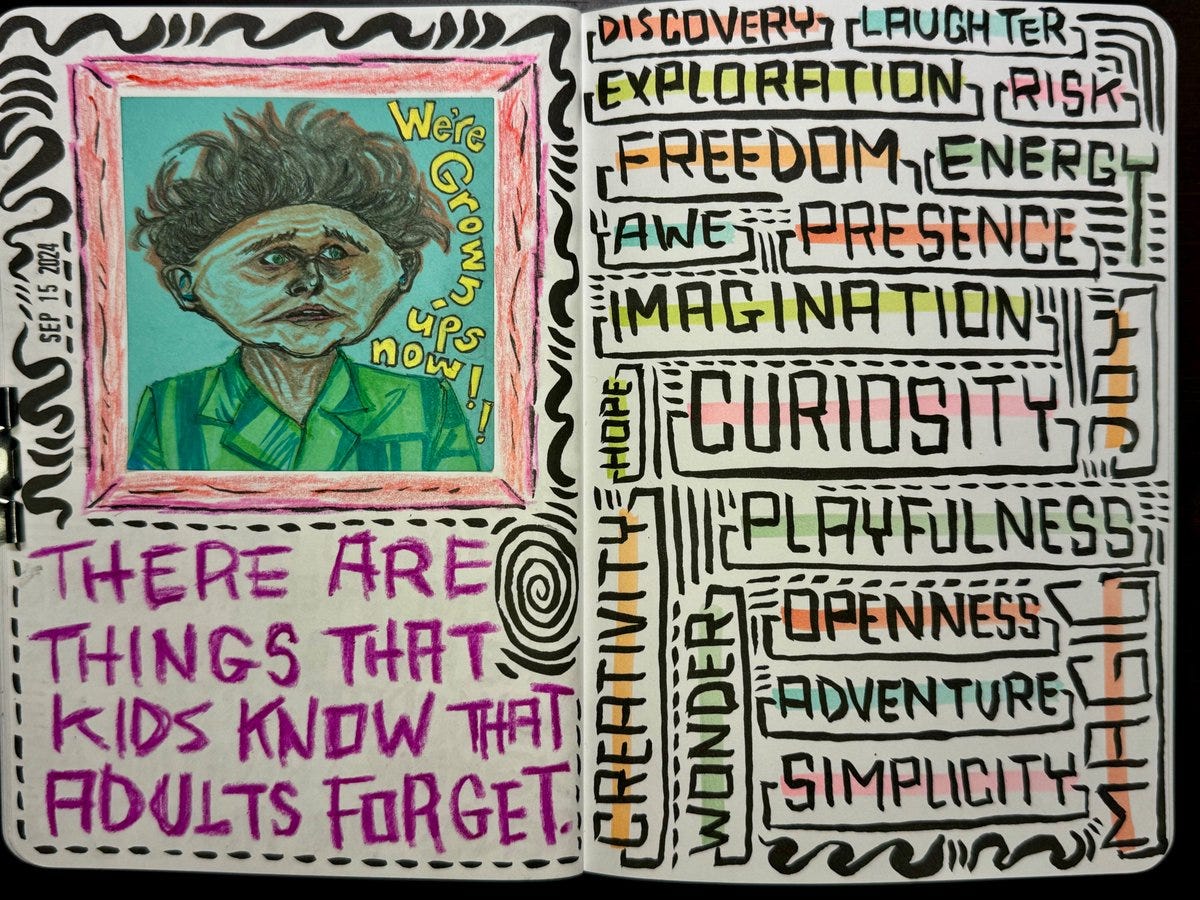 We're
Grown-
ups
now!!
SEP 15 2024
THERE ARE
THINGS THAT
KIDS KNOW THAT
ADULTS FORGET.
DISCOVERY LAUGHTER
EXPLORATION RISK
FREEDOM ENERGY
AWE PRESENCE
IMAGINATION
JOY
HOPE
CURIOSITY
PLAYFULNESS
CREATIVITY
WONDER
OPENNESS
ADVENTURE
SIMPLICITY
MAGIC